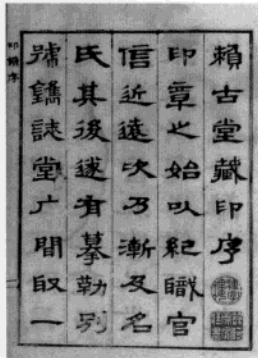 賴古堂藏印序
印章之始以紀職官
信近遠次乃漸及名
氏其後遂有摹勒別
號鐫誌堂户間取一
印譜序